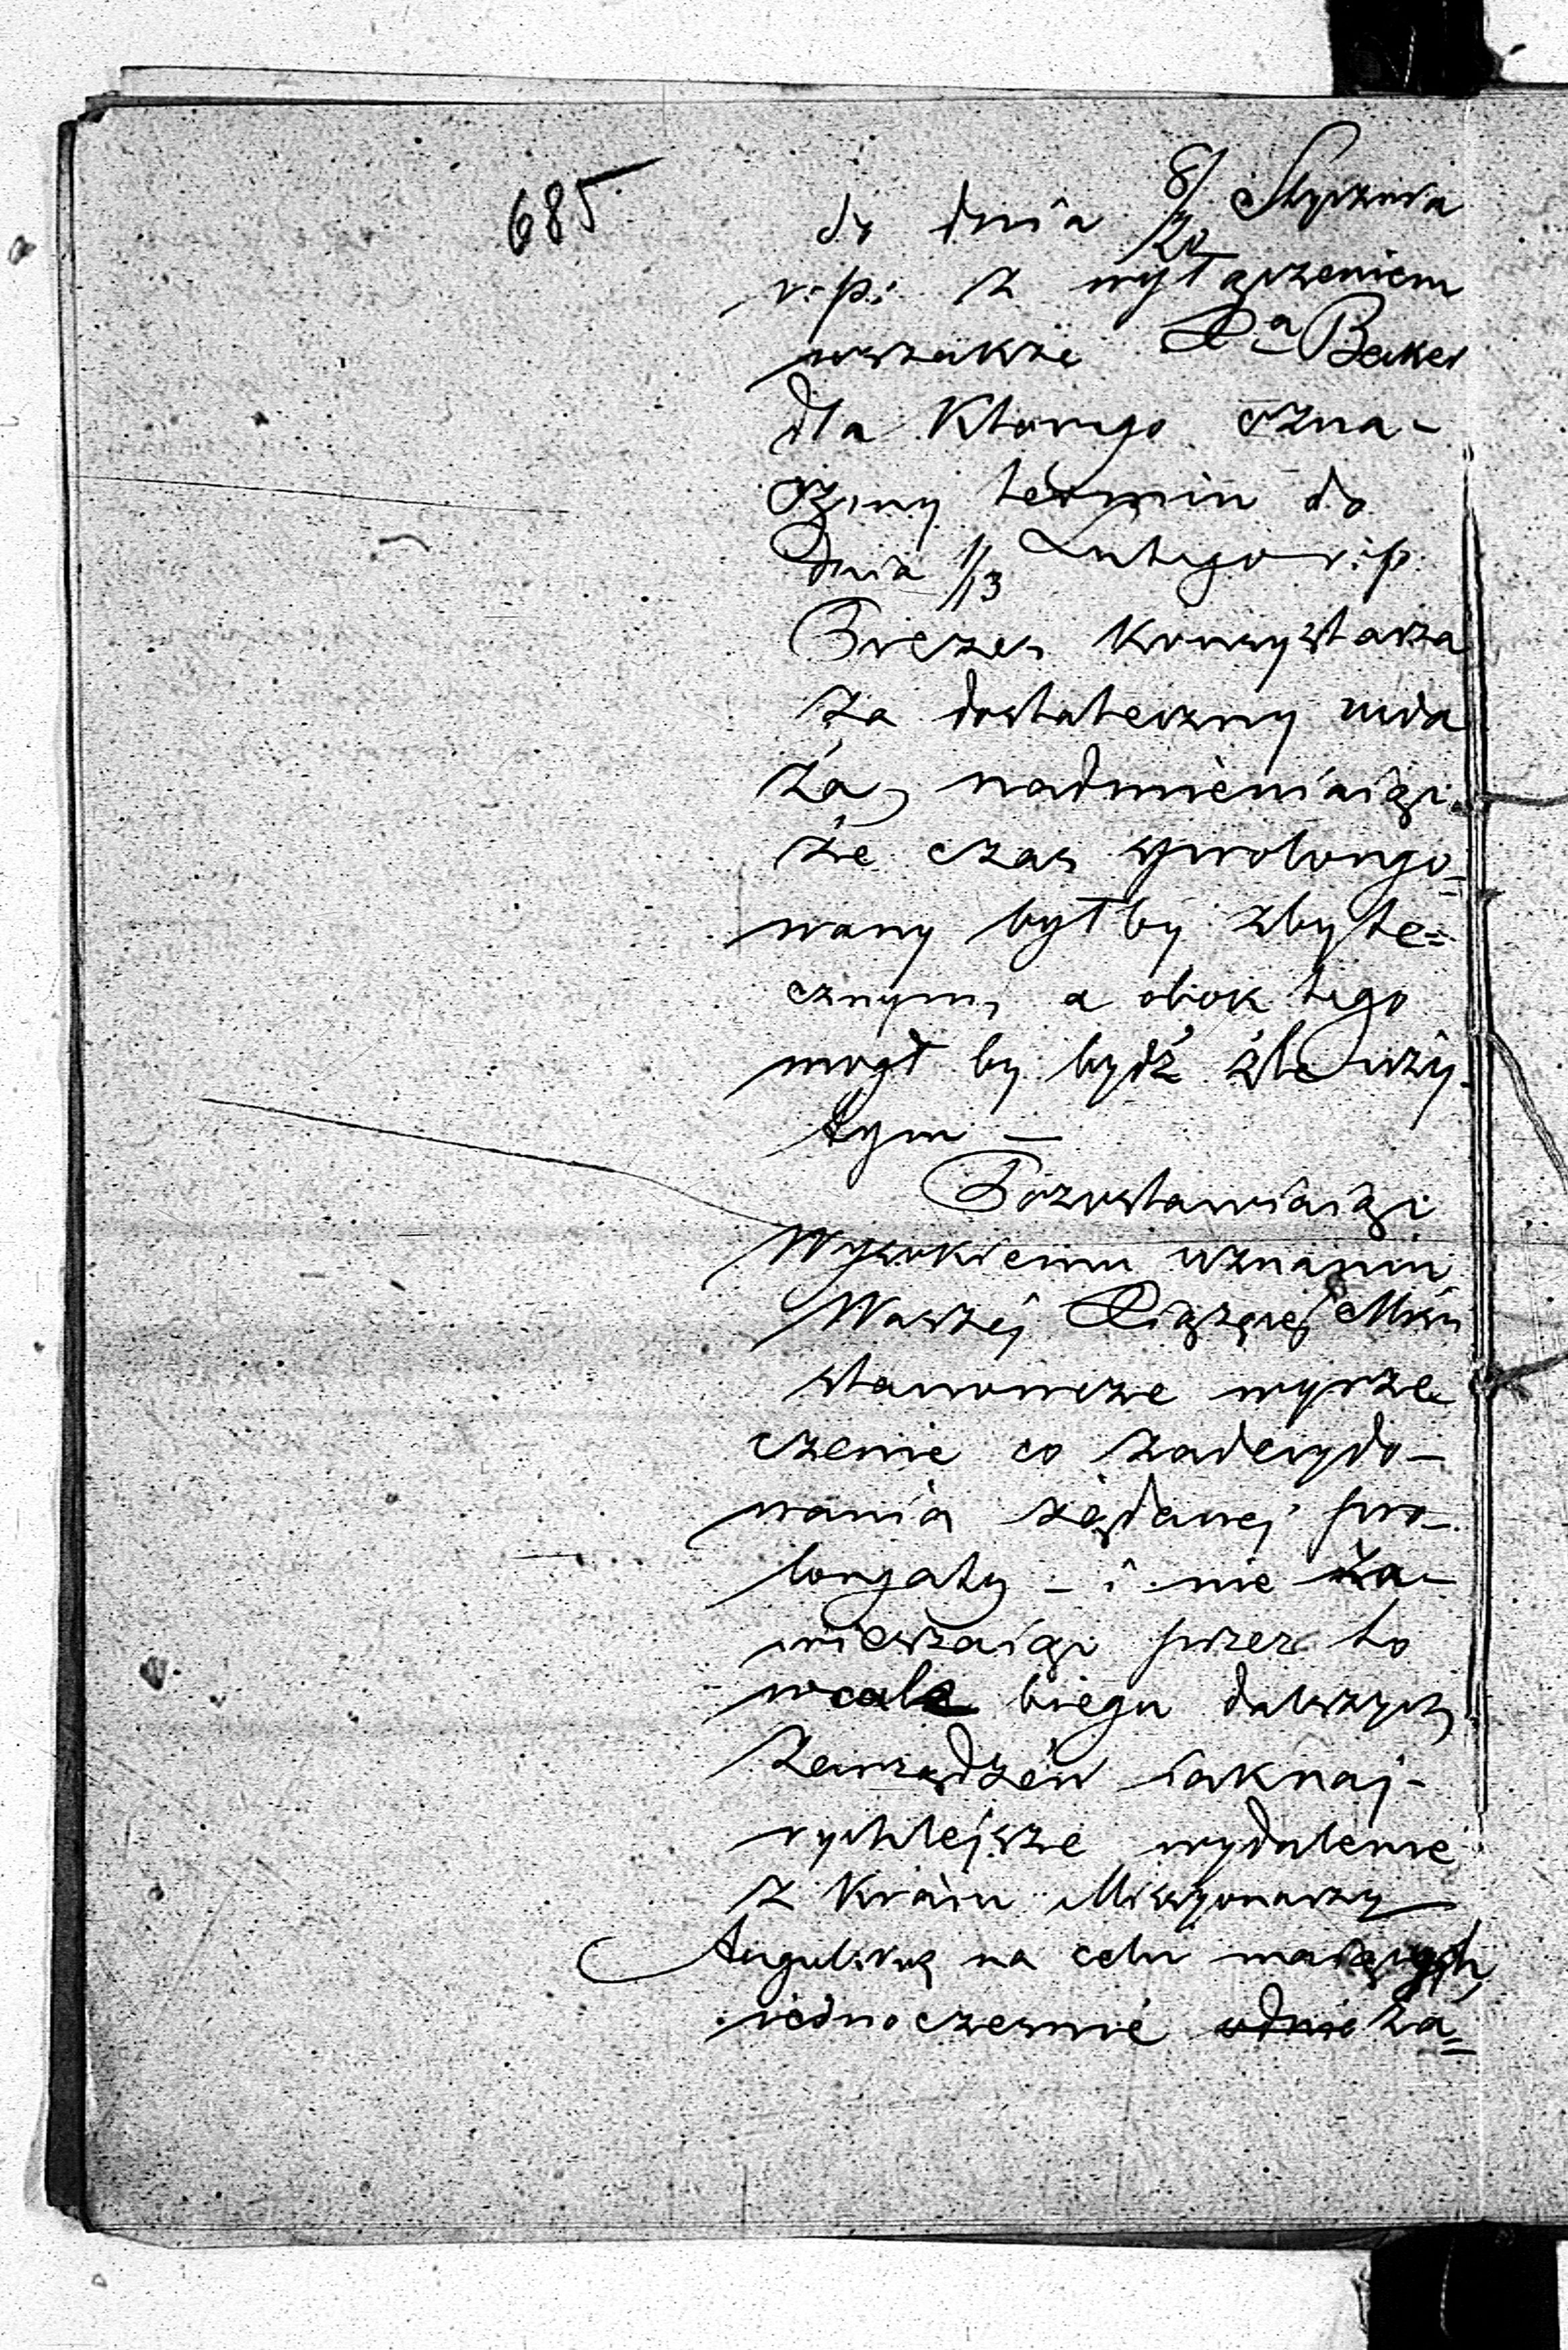 685
do dnia 8/20 Stycznia
r: p: z wyłączeniem
wszakże Xa Beker
dla którego ozna-
czony termin do
dnia 1/13 Lutego r: p.
Prezes Konsystorza
za dostateczny uwa
ża, nadmieniaiąc
że czas sprolongo-
wany był by zbyte=
cznym, a obok tego
mogł by bydź źle uży-
tym —
Pozostawiaiąc
Wysokiemu uznaniu
Waszéj Xiążęcej Mości
stanowcze wyrze
czenie co zadecydo-
wania żądanej pro-
longaty – i nie za-
wieszaiąc przez to
wcale biegu dalszych
zarządzeń iaknaj-
rychlejsze wydalenie
z Kraiu Missyonarzy
Angielskich na celu maiących,
iednocześnie odnie za=